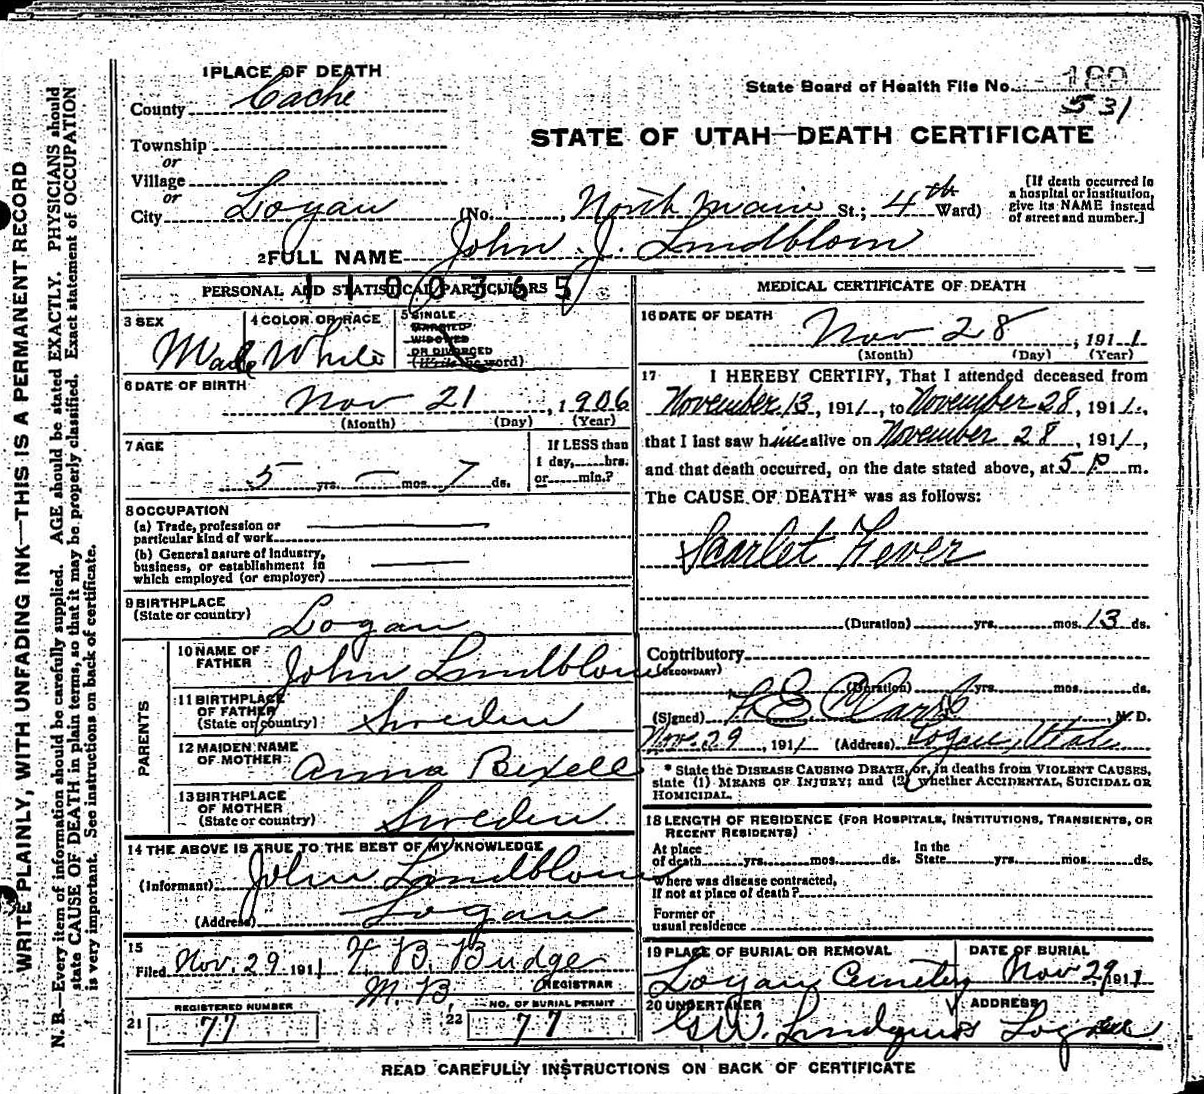 1 PLACE OF DEATH
County Cache
State Board of Health File No. 531
STATE OF UTAH—DEATH CERTIFICATE
Township
or
Village
or
City Logan (No. , North Main St.; 4th Ward)
[If death occurred in a hospital or institution, give its NAME instead of street and number.]
2 FULL NAME John J. Lundblom
1100365
PERSONAL AND STATISTICAL PARTICULARS
3 SEX Male
4 COLOR OR RACE White
5 SINGLE
MARRIED
WIDOWED
OR DIVORCED
(Write the word)
6 DATE OF BIRTH
Nov 21, 1906
(Month) (Day) (Year)
7 AGE
5 yrs. — mos. 7 ds.
If LESS than
1 day, hrs.
or min.?
8 OCCUPATION
(a) Trade, profession or
particular kind of work
(b) General nature of industry,
business, or establishment in
which employed (or employer)
9 BIRTHPLACE
(State or country) Logan
PARENTS
10 NAME OF
FATHER John Lundblom
11 BIRTHPLACE
OF FATHER
(State or country) Sweden
12 MAIDEN NAME
OF MOTHER Anna Bixell
13 BIRTHPLACE
OF MOTHER
(State or country) Sweden
14 THE ABOVE IS TRUE TO THE BEST OF MY KNOWLEDGE
(Informant) John Lundblom
(Address) Logan
15
Filed Nov. 29 1911 B. Budge
M.D. REGISTRAR
REGISTERED NUMBER
21 77
NO. OF BURIAL PERMIT
22 77
MEDICAL CERTIFICATE OF DEATH
16 DATE OF DEATH
Nov 28, 1911
(Month) (Day) (Year)
17 I HEREBY CERTIFY, That I attended deceased from
November 13, 1911, to November 28, 1911,
that I last saw him alive on November 28, 1911,
and that death occurred, on the date stated above, at 5 P m.
The CAUSE OF DEATH* was as follows:
Scarlet Fever
(Duration) yrs. mos. 13 ds.
Contributory
(SECONDARY)
(Duration) yrs. mos. ds.
(Signed) M.D.
Nov. 29, 1911 (Address) Logan, Utah
* State the DISEASE CAUSING DEATH, or, in deaths from VIOLENT CAUSES,
state (1) MEANS OF INJURY; and (2) whether ACCIDENTAL, SUICIDAL OR
HOMICIDAL.
18 LENGTH OF RESIDENCE (FOR HOSPITALS, INSTITUTIONS, TRANSIENTS, OR
RECENT RESIDENTS)
At place In the
of death yrs. mos. ds. State yrs. mos. ds.
Where was disease contracted,
If not at place of death?
Former or
usual residence
19 PLACE OF BURIAL OR REMOVAL DATE OF BURIAL
Logan Cemetery Nov 29 1911
20 UNDERTAKER ADDRESS
G W. Lindquist Logan
READ CAREFULLY INSTRUCTIONS ON BACK OF CERTIFICATE
WRITE PLAINLY, WITH UNFADING INK—THIS IS A PERMANENT RECORD
N. B.—Every item of information should be carefully supplied. AGE should be stated EXACTLY. PHYSICIANS should
state CAUSE OF DEATH in plain terms, so that it may be properly classified. Exact statement of OCCUPATION
is very important. See instructions on back of certificate.